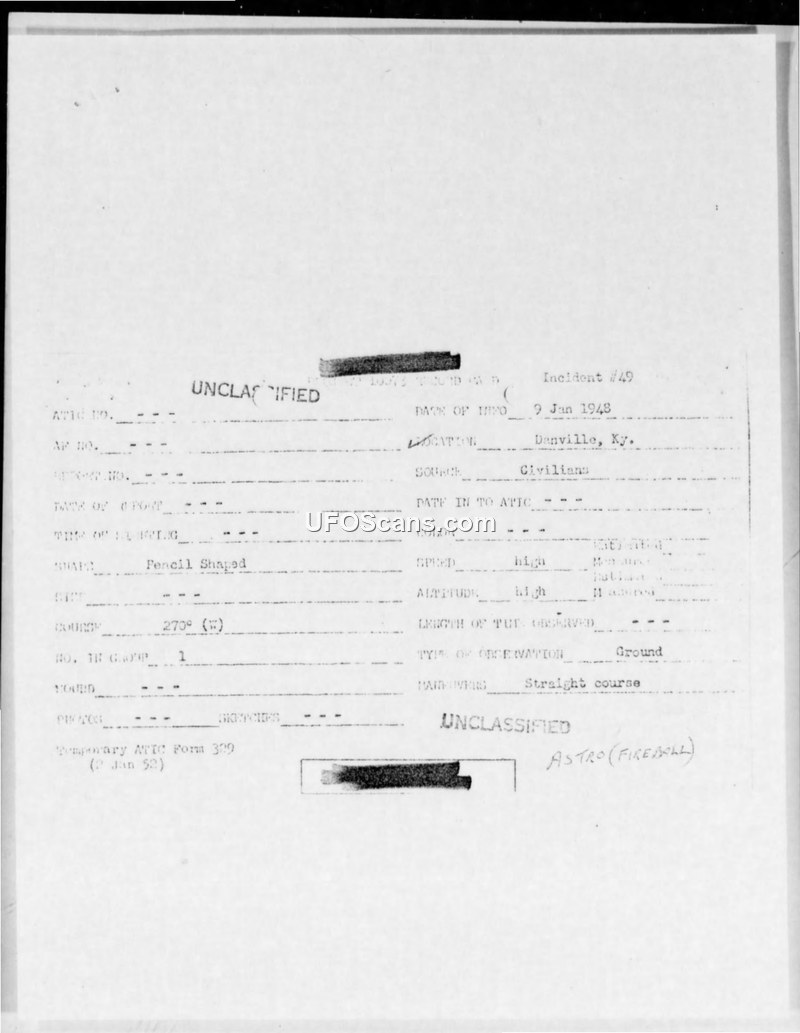 Incident #49
UNCLASSIFIED
ATIC NO. - - -
DATE OF INFO 9 Jan 1948
AF NO. - - -
LOCATION Danville, Ky.
REPORT NO. - - -
SOURCE Civilians
DATE OF REPORT - - -
DATE IN TO ATIC - - -
TIME OF SIGHTING - - -
COLOR - - -
UFOScans.com
SHAPE Pencil Shaped
SPEED high
SIZE - - -
ALTITUDE high
COURSE 270° (W)
LENGTH OF TIME OBSERVED - - -
NO. IN GROUP 1
TYPE OF OBSERVATION Ground
SOUND - - -
MANEUVERS Straight course
PHOTOS - - - SKETCHES - - -
UNCLASSIFIED
Temporary ATIC Form 329
(2 Jan 52)
ASTRO (FIREBALL)